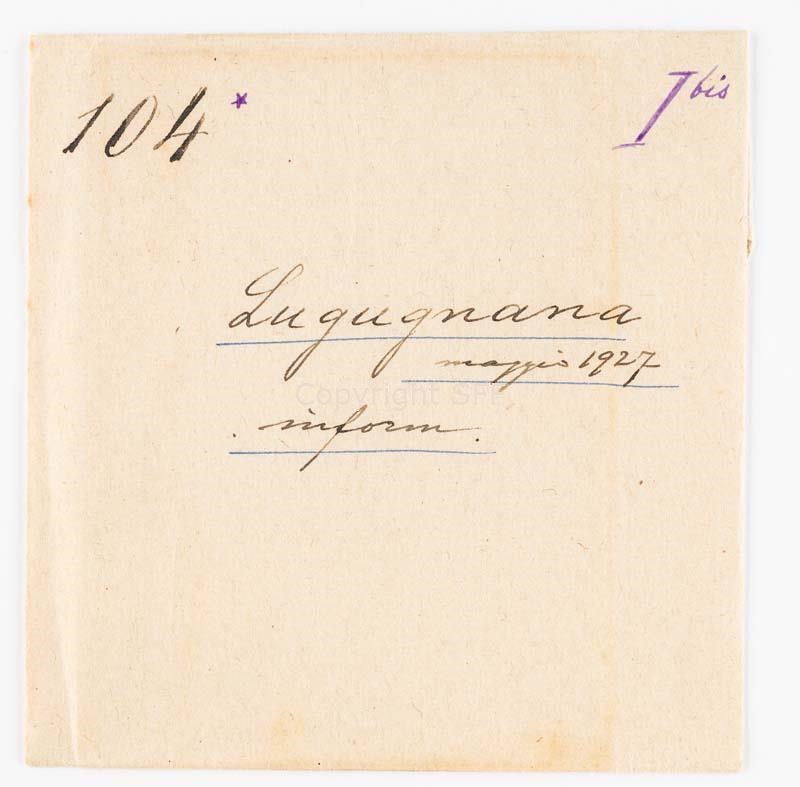 104*
I bis
Lugugnana
maggio 1927
inform.
Copyright SFI